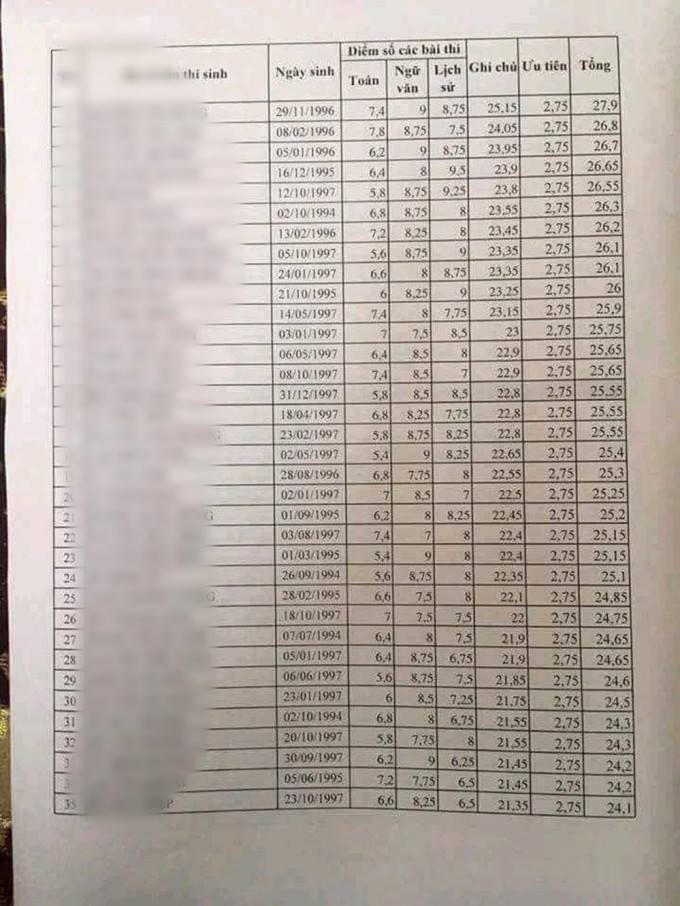 thí sinh Ngày sinh Điểm số các bài thi Ghi chú Ưu tiên Tổng
Toán Ngữ văn Lịch sử
29/11/1996 7,4 9 8,75 25,15 2,75 27,9
08/02/1996 7,8 8,75 7,5 24,05 2,75 26,8
05/01/1996 6,2 9 8,75 23,95 2,75 26,7
16/12/1995 6,4 8 9,5 23,9 2,75 26,65
12/10/1997 5,8 8,75 9,25 23,8 2,75 26,55
02/10/1994 6,8 8,75 8 23,55 2,75 26,3
13/02/1996 7,2 8,25 8 23,45 2,75 26,2
05/10/1997 5,6 8,75 9 23,35 2,75 26,1
24/01/1997 6,6 8 8,75 23,35 2,75 26,1
21/10/1995 6 8,25 9 23,25 2,75 26
14/05/1997 7,4 8 7,75 23,15 2,75 25,9
03/01/1997 7 7,5 8,5 23 2,75 25,75
06/05/1997 6,4 8,5 8 22,9 2,75 25,65
08/10/1997 7,4 8,5 7 22,9 2,75 25,65
31/12/1997 5,8 8,5 8,5 22,8 2,75 25,55
18/04/1997 6,8 8,25 7,75 22,8 2,75 25,55
23/02/1997 5,8 8,75 8,25 22,8 2,75 25,55
02/05/1997 5,4 9 8,25 22,65 2,75 25,4
28/08/1996 6,8 7,75 8 22,55 2,75 25,3
20 02/01/1997 7 8,5 7 22,5 2,75 25,25
21 01/09/1995 6,2 8 8,25 22,45 2,75 25,2
22 03/08/1997 7,4 7 8 22,4 2,75 25,15
23 01/03/1995 5,4 9 8 22,4 2,75 25,15
24 26/09/1994 5,6 8,75 8 22,35 2,75 25,1
25 28/02/1995 6,6 7,5 8 22,1 2,75 24,85
26 18/10/1997 7 7,5 7,5 22 2,75 24,75
27 07/07/1994 6,4 8 7,5 21,9 2,75 24,65
28 05/01/1997 6,4 8,75 6,75 21,9 2,75 24,65
29 06/06/1997 5,6 8,75 7,5 21,85 2,75 24,6
30 23/01/1997 6 8,5 7,25 21,75 2,75 24,5
31 02/10/1994 6,8 8 6,75 21,55 2,75 24,3
32 20/10/1997 5,8 7,75 8 21,55 2,75 24,3
30/09/1997 6,2 9 6,25 21,45 2,75 24,2
05/06/1995 7,2 7,75 6,5 21,45 2,75 24,2
35 23/10/1997 6,6 8,25 6,5 21,35 2,75 24,1